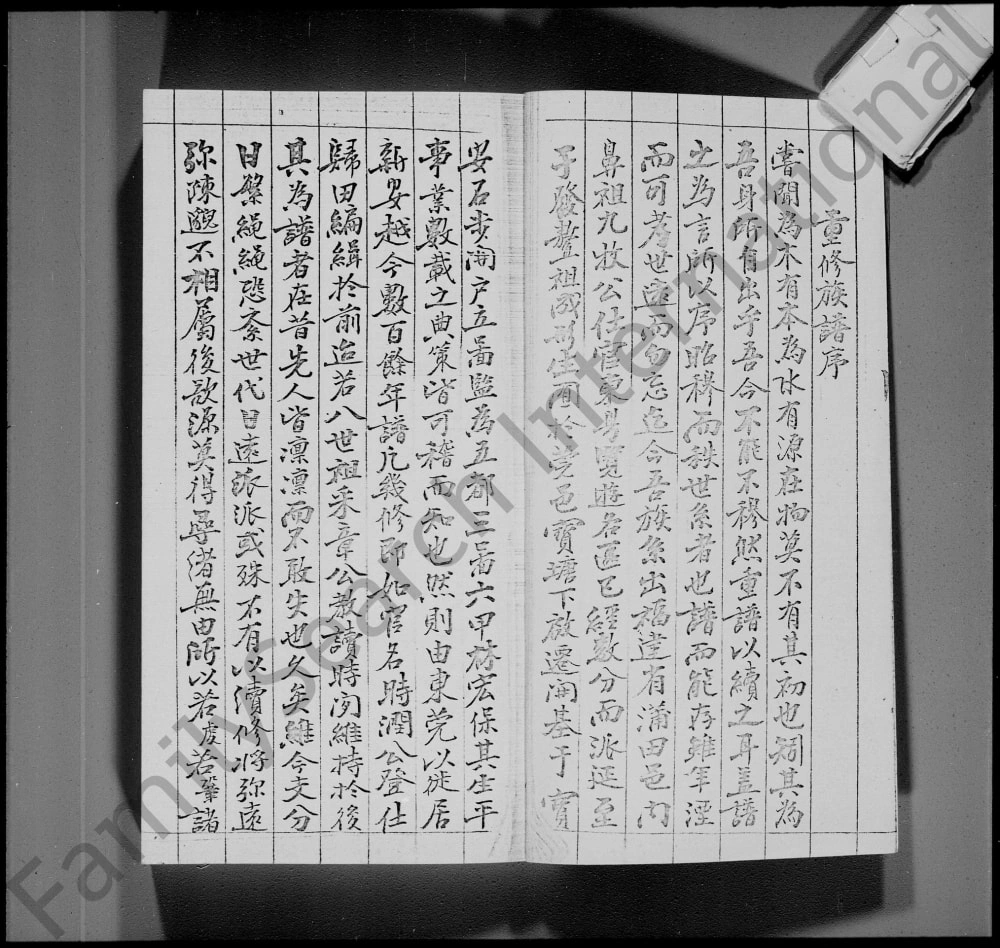 重修族譜序
嘗聞為木有本為水有源在物莫不有其初也矧其為
吾身所有出乎吾今不能不穆然重譜以續之耳蓋譜
之為言所以序昭穆而秩世系者也譜而能存雖年湮
而可考世遠而勿忘迄今吾族系出福建省蒲田邑內
鼻祖九牧公仕官東粵覽遊名區已經數分而派延至
子發聱祖成形生甫於莞邑寶塘下啟遷開基于寶
安石步開户立啚監為五都三啚六甲林宏保其生平
事業數載之典策皆可稽而知也然則由東莞以徙居
新安越今數百餘年譜凡幾修即如官名時潤公登仕
歸田編緝於前迨若八世祖采章公教讀時閒維持於後
其為譜者在昔先人皆凜凜而不敢失也久矣維今支分
日繁繩繩恐紊世代日遠派派或殊不有以續修將弥遠
弥陳邈不相屬後欲源莫得尋渚無由所以若虔若肇諸
FamilySearch International